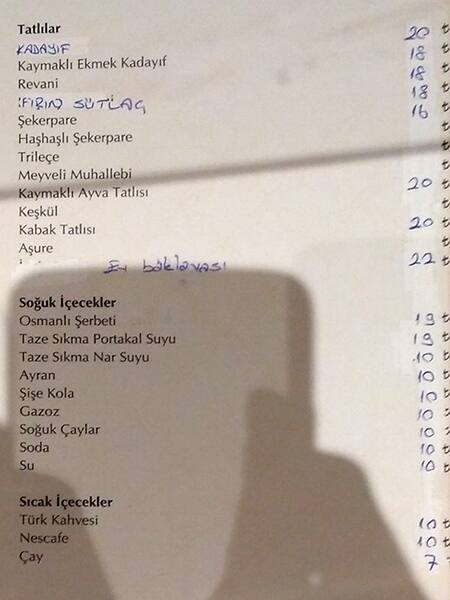 Tatlılar
KADAYIF 20 ₺
Kaymaklı Ekmek Kadayıf 18 ₺
Revani 18 ₺
(FIRIN) SÜTLAÇ 18 ₺
Şekerpare 16 ₺
Haşhaşlı Şekerpare ₺
Trileçe ₺
Meyveli Muhallebi ₺
Kaymaklı Ayva Tatlısı 20 ₺
Keşkül ₺
Kabak Tatlısı 20 ₺
Aşure ₺
Ev baklavası 22 ₺
Soğuk İçecekler
Osmanlı Şerbeti 19 ₺
Taze Sıkma Portakal Suyu 19 ₺
Taze Sıkma Nar Suyu 10 ₺
Ayran 10 ₺
Şişe Kola 10 ₺
Gazoz 10 ₺
Soğuk Çaylar 10 ₺
Soda 10 ₺
Su 10 ₺
Sıcak İçecekler
Türk Kahvesi 10 ₺
Nescafe 10 ₺
Çay 7 ₺